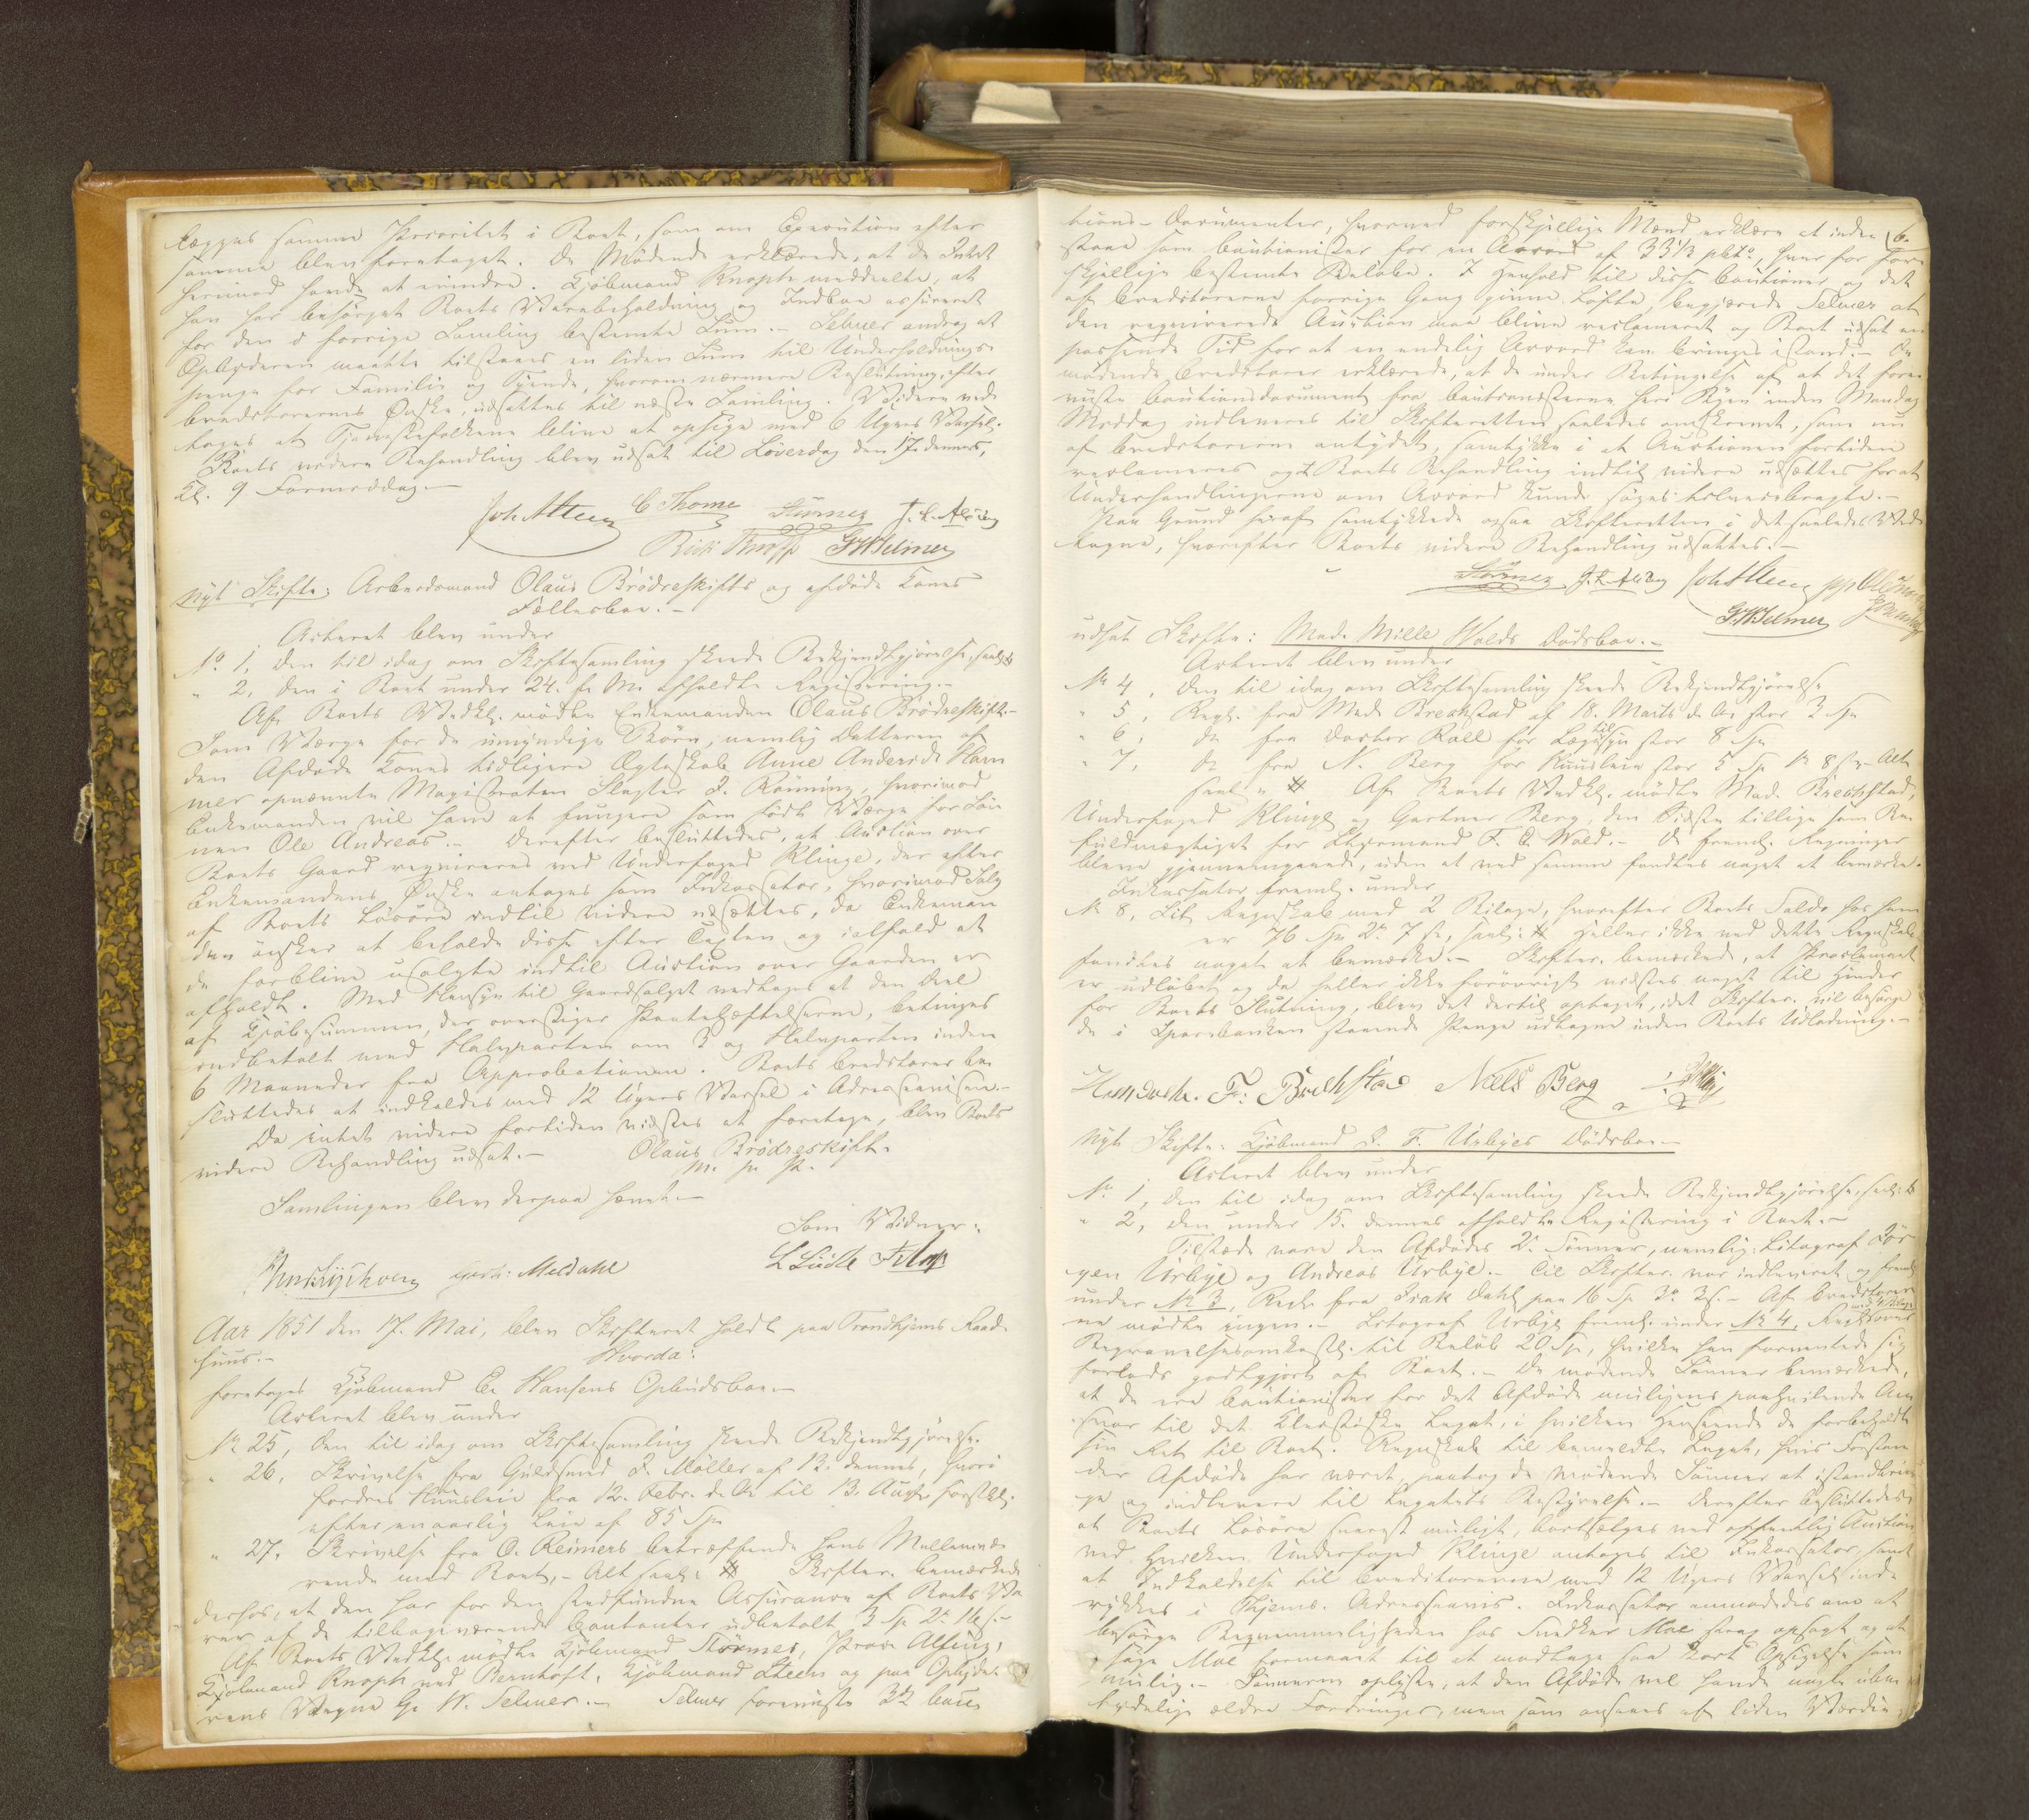 lægges samme Prioritet i Boet, som om Execution efter
samme blev foretaget. De Mødende erklærede, at de Intet
herimod havde at erindre. Kjøbmand Knoph meddeelte, at
han har besørget Boets Varebeholdning og Indboe assureret
for den i forrige Samling bestemte Sum. - Selmer androg at
Opbyderen maatte tilstaaes en liden Sum til Underholdnings-
penge for Familie og Tyende, hvorom nærmere Beslutning, efter
Creditorernes Ønske, udsattes til næste Samling. Videre ved-
toges at Tjenestefolkene blive at opsige med 6 Ugers Varsel.
Boets videre Behandling blev udsat til Løverdag den 17. dennes,
Kl. 9 Formiddag. -
Joh Steen C Thome Størmer J. L. Alsing
Rich Knoph G W Selmer
Nyt Skifte: Arbeidsmand Olaus Brödreskifts og afdøde Kones
Fællesboe. -
Acteret blev under
No 1, den til idag om Skiftesamling skeede Bekjendtgjørelse,
" 2, den i Boet under 24. f. M. afholdte Registrering. -
Af Boets Vedk. mødte Enkemanden Olaus Brödreskift. -
Som Værge for de umyndige Børn, nemlig Datteren af
den Afdøde Kones tidligere Ægteskab Anne Andersdt Ham
mer opnævnte Magistraten Slagter J. Rönning, hvorimod
Enkemanden vil have at fungere som født Værge for Søn
nen Ole Andreas. - Derefter besluttedes, at Auction over
Boets Gaard reqvireres ved Underfoged Klinge, der efter
Enkemandens Ønske antoges som Incassator, hvorimod Salg
af Boets Løsøre indtil videre udsættes, da Enkeman
den ønsker at beholde disse efter Taxten og ialfald at
de forblive usolgte indtil Auction over Gaarden er
afholdt. Med Hensyn til Gaardsalget vedtoges at den Deel
af Kjøbesummen, der overstiger Pantehæftelserne, betinges
indbetalt med Halvparten om 3 og Halvparten inden
6 Maaneder fra Approbationen. Boets Creditorer be
sluttedes at indkaldes med 12 Ugers Varsel i Adresseavisen. -
Da Intet videre fortiden vidstes at foretage, blev Boets
videre Behandling udsat. - Olaus Brødreskift.
m. p. P.
Samlingen blev derpaa hævet. -
Som Vidner:
Meldahl L Lüdte
Aar 1851 den 17. Mai, blev Skifteret holdt paa Trondhjems Raad-
huus. - Hvorda:
foretoges Kjøbmand C. Hansens Opbudsboe. -
Acteret blev under
No 25, den til idag om Skiftesamling skeede Bekjendtgjørelse.
" 26, Skrivelse fra Guldsmed J. Möller af 13. dennes, hvori
fordres Huusleie fra 12. Febr. d. A. til 13. Augst førstk.
efter en aarlig Leie af 85 Spd
" 27, Skrivelse fra O. Reimers betræffende hans Mellemvæ
rende med Boet, - Alt saal: Skifter. bemærkede
derhos, at den har for den stedfundne Assurance af Boets Va
rer af de tilbageværende Contanter udbetalt 3 Sp 2
Af Boets Vedk. mødte Kjøbmand Størmer, Procr Alsing,
Kjøbmand Knoph ved Bernhoft, Kjøbmand Steen og paa Opbyde-
rens Vegne G. W. Selmer. - Selmer foreviste Cau
6.
tions-Documenter, hvorved forskjellige Mænd erklære at inde
staae som Cautionister for en Accord af 33 1/3 pCto, hver for for
skjellige bestemte Beløbe. I Henhold til disse Cautioner og det
af Creditorerne forrige Gang givne Løfte, begjærede Selmer at
den reqvirerede Auction maa blive reclameret og Boet udsat en
passende Tid for at en endelig Accord kan bringes istand. - De
mødende Creditorer erklærede, at de under Betingelse af at det fore-
viste Cautionsdocument fra Cautionisterne her i Byen inden Mandag
Middag indleveres til Skifteretten saaledes omskrevet, som nu
af Creditorerne antydet, samtykke i at Auctionen fortiden
reclameres og at Boets Behandling indtil videre udsættes for at
Underhandlingerne om Accord kunde søges tilveiebragte. -
Paa Grund heraf samtykkede ogsaa Skifteretten i det saaledes Ved
tagne, hvorefter Boets videre Behandling udsattes. -
Størmer J. L. Alsing Joh Steen
G W Selmer
udsat Skifte: Mad. Mille Walds Dødsboe. -
Acteret blev under
No 4, den til idag om Skiftesamling skeede Bekjendtgjørelse
" 5, Regn. fra Mad. Brechstad af 18. Marts d. A. stor 3 Spd
" 6, do fra Doctor Roll for Lægetilsyn stor 8 Spd
" 7, do fra N. Berg for Huusleie stor 5 Sp - Alt
saal: Af Boets Vedk. mødte Mad. Brechstad,
Underfoged Klinge og Gartner Berg, den Sidste tillige som Be
fuldmægtiget for Styrmand F. C. Wold. - De freml. Regninger
bleve gjennemgaaede, uden at ved samme fandtes noget at bemærke.
Incassator freml. under
No 8, Sit Regnskab med 2 Bilage, hvorefter Boets Saldo hos ham
er 76 Spd 2 7 s, saal: Heller ikke ved dette Regnskab
fandtes noget at bemærke. - Skifter. bemærkede, at Proclamaet
er udløbet og da heller ikke forøvrigt vidstes noget til Hinder
for Boets Slutning, blev det dertil optaget, idet Skifter. vil besørge
de i Sparebanken staaende Penge udtagne inden Boets Udlodning. -
F: Brechstad Niels Berg
Nyt Skifte: Kjøbmand J. F. Urbyes Dødsboe. -
Acteret blev under
No 1, den til idag om Skiftesamling skeede Bekjendtgjørelse, saal:
" 2, den under 15. dennes afholdte Registrering i Boet. -
Tilstæde vare den Afdødes 2 Sønner, nemlig: Litograf Jør
gen Urbye og Andreas Urbye. - Til Skifter. var indleveret og freml.
under No 3, Regn. fra Isak Dahl paa 16 Sp 3 - Af Creditorer
ne mødte ingen. - Litograf Urbye freml. under No 4, Regn. over
med 4 Bilage
Begravelsesomkostn. til Beløb 20 Sp, hvilke han formentede sig
forlods godtgjort af Boet. - De mødende Sønner bemærkede,
at de ere Cautionister for det Afdøde muligens paahvilende An
svar til det Legat, i hvilken Henseende de forbeholdt
sin Ret til Boet. Regnskab til bemeldte Legat, hvis Forstan
der Afdøde har været, paatog de mødende Sønner at istandbrin
ge og indlevere til Legatets Bestyrelse. - Derefter besluttedes
at Boets Løsøre snarest muligt, bortsælges ved offentlig Auction
ved hvilken Underfoged Klinge antoges til Incassator, samt
at Indkaldelse til Creditorerne med 12 Ugers Varsel ind
rykkes i Thjems. Adresseavis. Incassator anmodedes om at
besørge Beqvemmeligheden hos Snedker Moe strax opsagt og at
søge Moe formaaet til at modtage saa kort Opsigelse som
mulig. - Sønnerne oplyste, at den Afdøde vel havde nogle ube
tydelige ældre Fordringer, men som ansaaes af liden Værdie,